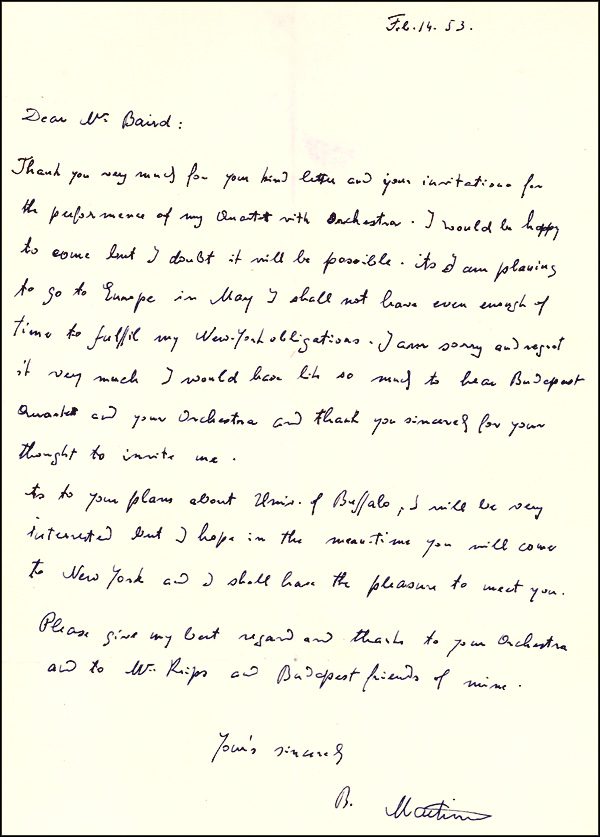 Feb. 14. 53.
Dear Mr. Baird:
Thank you very much for your kind letter and your invitation for
the performance of my Quartet with Orchestra. I would be happy
to come but I doubt it will be possible. As I am planing
to go to Europe in May I shall not have even enough of
time to fulfil my New-York obligations. I am sorry and regret
it very much I would have like so much to hear Budapest
Quartet and your Orchestra and thank you sincerely for your
thought to invite me.
As to your plans about Univ. of Buffalo, I will be very
interested but I hope in the mean-time you will come
to New York and I shall have the pleasure to meet you.
Please give my best regard and thanks to your Orchestra
and to Mr. Krips and Budapest friends of mine.
Your's sincerely
B. Martinu